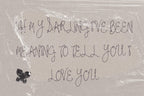 HEY DARLING I'VE BEEN
MEANING TO TELL YOU I
LOVE YOU